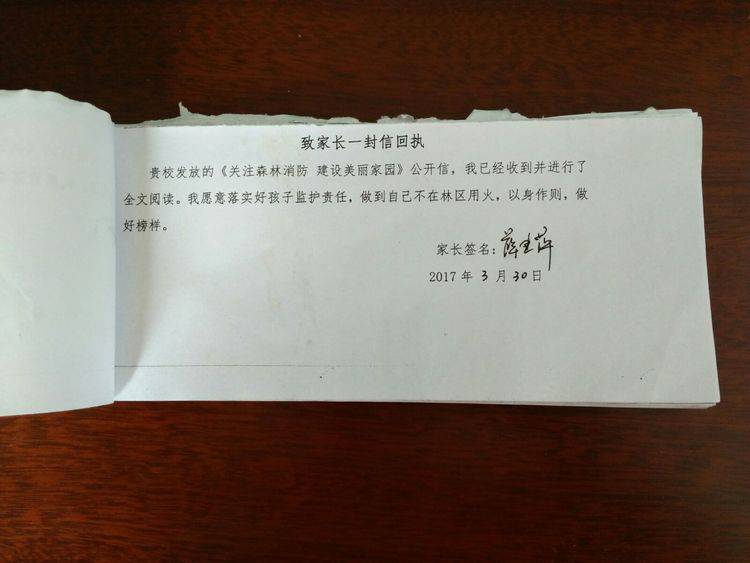 致家长一封信回执
贵校发放的《关注森林消防 建设美丽家园》公开信，我已经收到并进行了
全文阅读。我愿意落实好孩子监护责任，做到自己不在林区用火，以身作则，做
好榜样。
家长签名：薛
2017 年 3 月 30 日